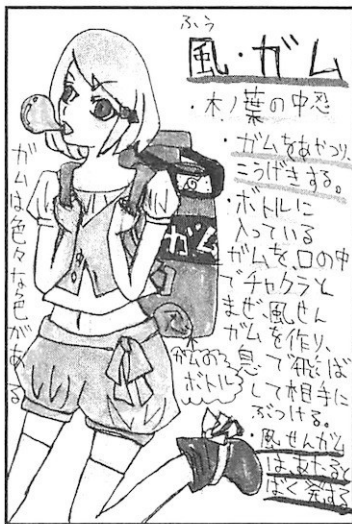 ふう
風・ガム
・木ノ葉の中忍
・ガムをあやつり、
こうげきする。
・ボトルに
入っている
ガムを、口の中
でチャクラと
まぜ、風せん
ガムを作り、
息で飛ば
して相手に
ぶつける。
・風せんガム
はあたると
ばく発する
ガムは色々な色がある
ガム
ボトル